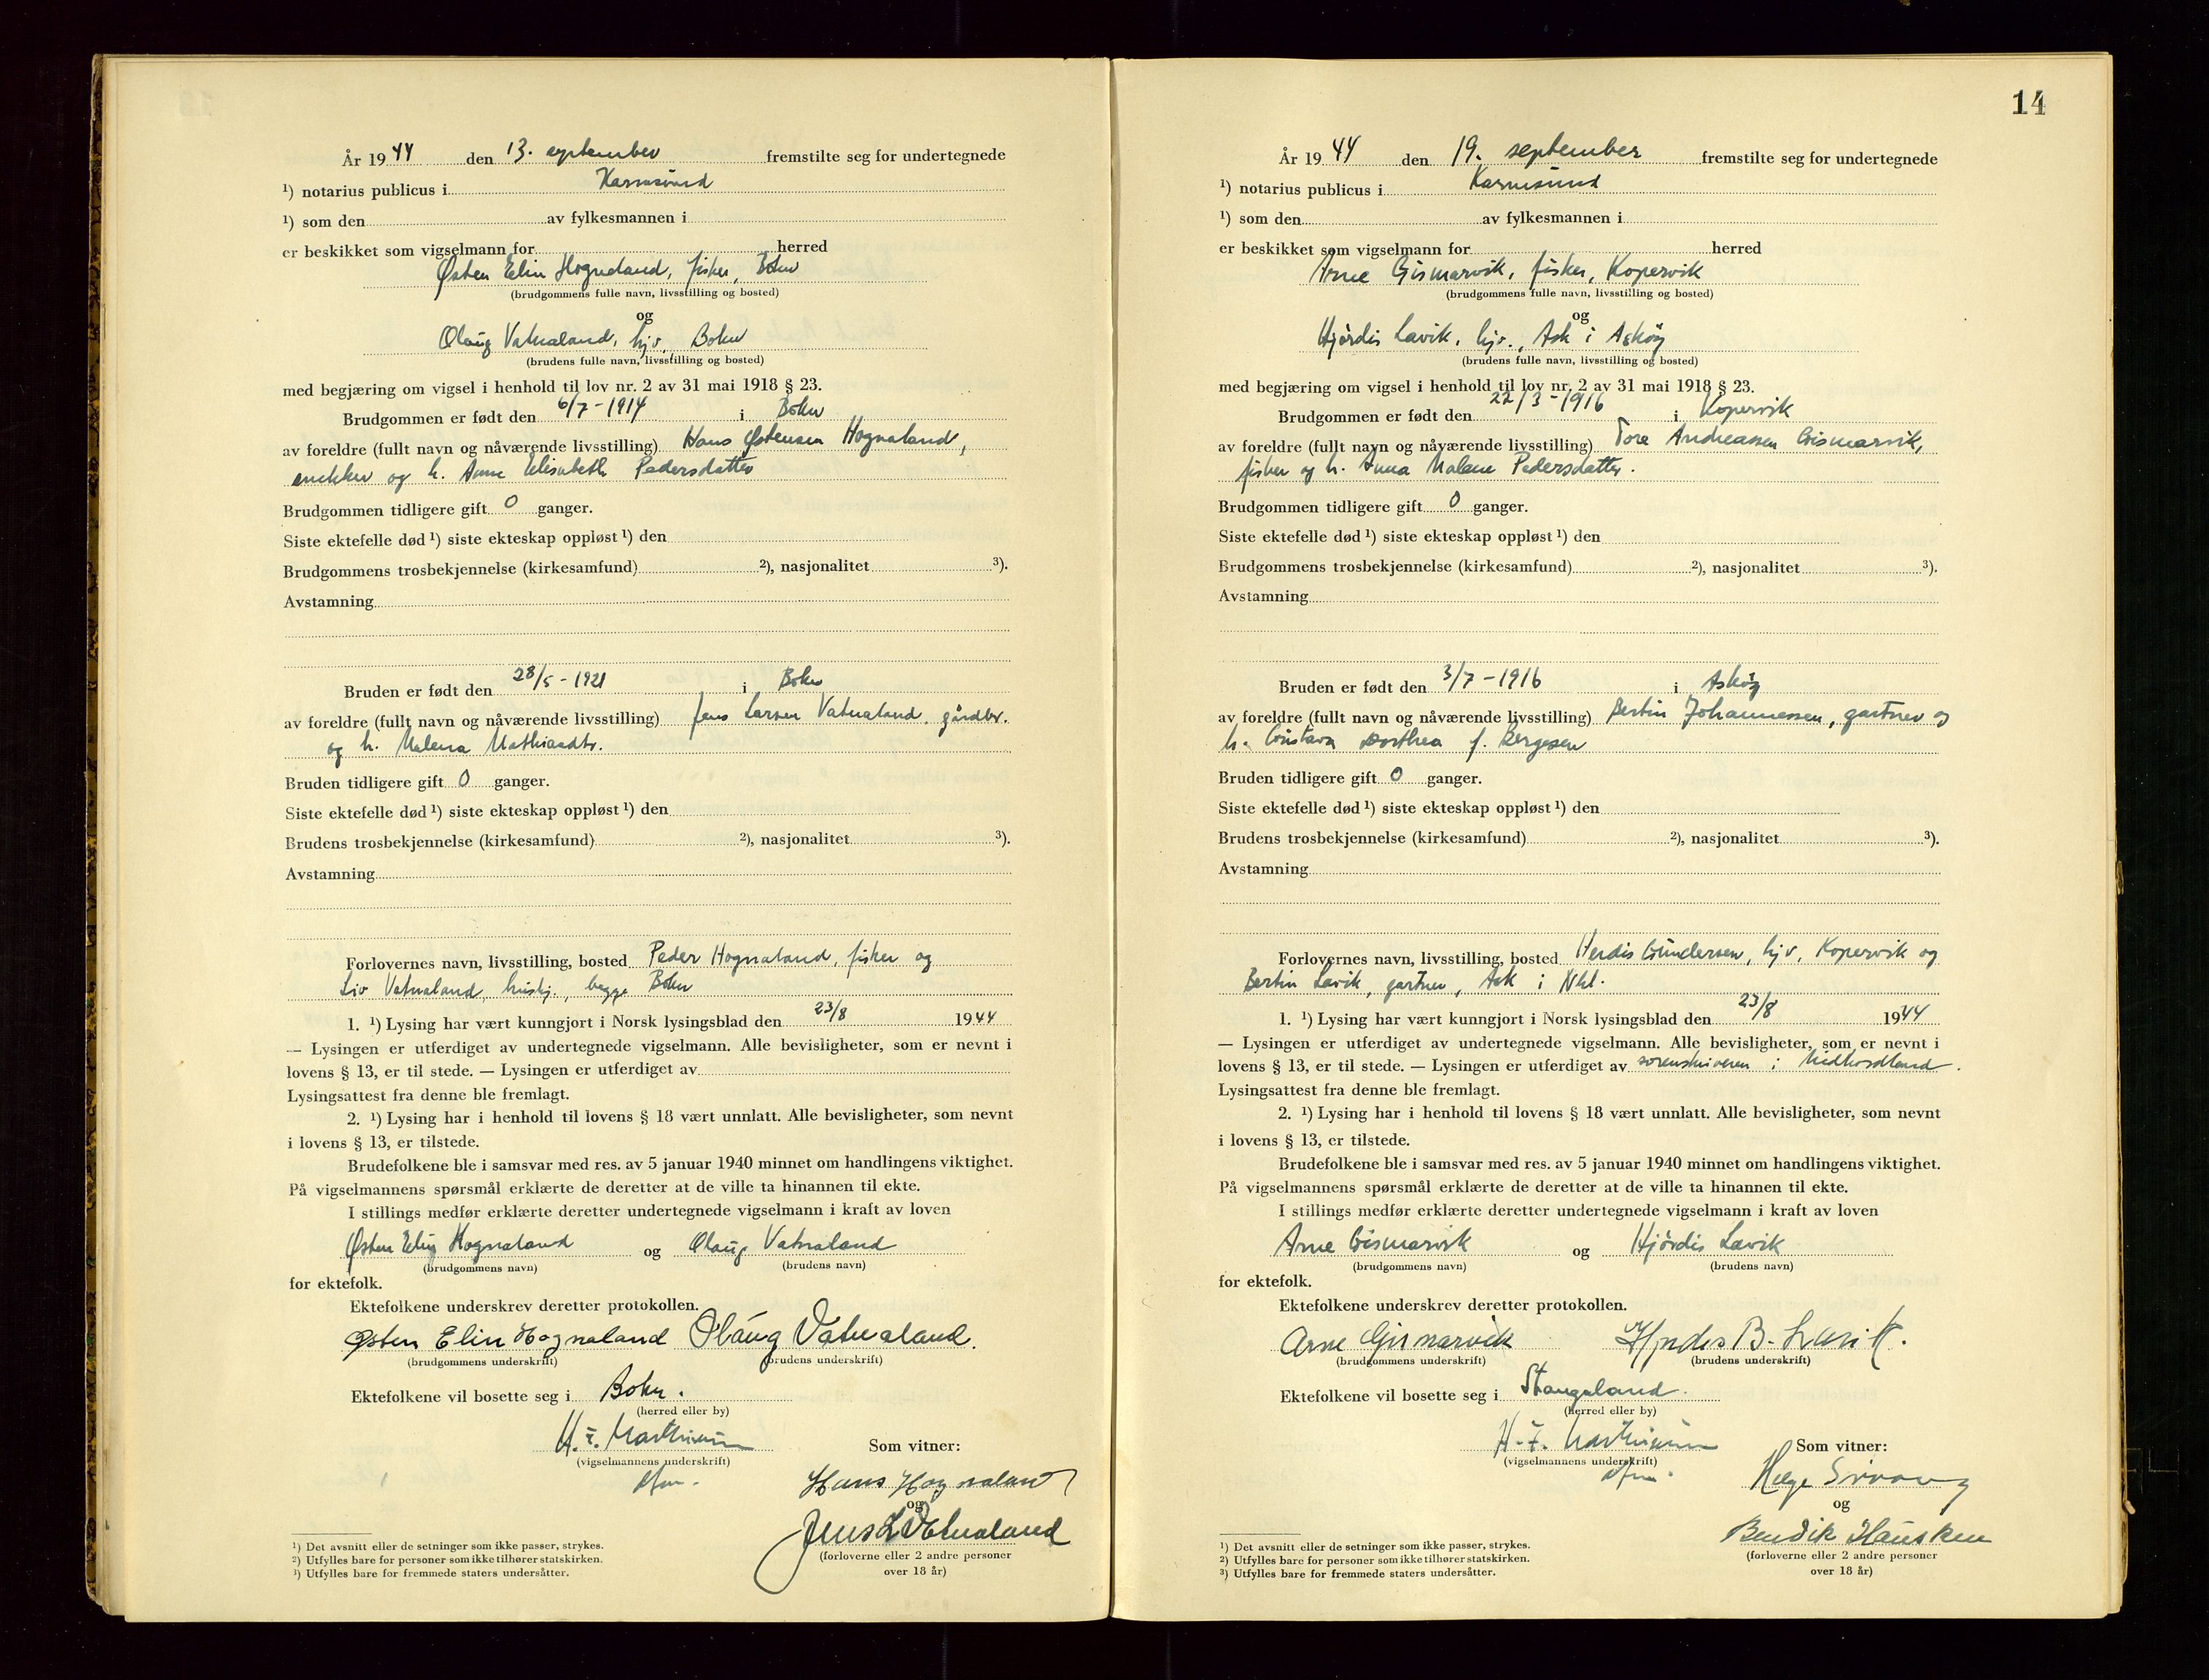 År 1944 den 13. september fremstilte seg for undertegnede
¹) notarius publicus i Karmsund
¹) som den av fylkesmannen i
er beskikket som vigselmann for herred
Østen Elin Hognaland, fisker, Bokn
(brudgommens fulle navn, livsstilling og bosted)
og
Olaug Vatnaland, hjv., Bokn
(brudens fulle navn, livsstilling og bosted)
med begjæring om vigsel i henhold til lov nr. 2 av 31 mai 1918 § 23.
Brudgommen er født den 6/7-1914 i Bokn
av foreldre (fullt navn og nåværende livsstilling) Hans Østensen Hognaland,
snekker og h. Anne Elisabeth Pedersdatter
Brudgommen tidligere gift 0 ganger.
Siste ektefelle død ¹) siste ekteskap oppløst ¹) den
Brudgommens trosbekjennelse (kirkesamfund) ²), nasjonalitet ³).
Avstamning
Bruden er født den 28/5-1921 i Bokn
av foreldre (fullt navn og nåværende livsstilling) Jens Larsen Vatnaland, gårdbr.
og h. Malena Mathiasdtr.
Bruden tidligere gift 0 ganger.
Siste ektefelle død ¹) siste ekteskap oppløst ¹) den
Brudens trosbekjennelse (kirkesamfund) ²), nasjonalitet ³).
Avstamning
Forlovernes navn, livsstilling, bosted Peder Hognaland, fisker og
Liv Vatnaland, hushj., begge Bokn
1. ¹) Lysing har vært kunngjort i Norsk lysingsblad den 23/8 1944
— Lysingen er utferdiget av undertegnede vigselmann. Alle bevisligheter, som er nevnt i
lovens § 13, er til stede. — Lysingen er utferdiget av
Lysingsattest fra denne ble fremlagt.
2. ¹) Lysing har i henhold til lovens § 18 vært unnlatt. Alle bevisligheter, som nevnt
i lovens § 13, er tilstede.
Brudefolkene ble i samsvar med res. av 5 januar 1940 minnet om handlingens viktighet.
På vigselmannens spørsmål erklærte de deretter at de ville ta hinannen til ekte.
I stillings medfør erklærte deretter undertegnede vigselmann i kraft av loven
Østen Elin Hognaland og Olaug Vatnaland
(brudgommens navn) (brudens navn)
for ektefolk.
Ektefolkene underskrev deretter protokollen.
Østen Elin Hognaland Olaug Vatnaland.
(brudgommens underskrift) (brudens underskrift)
Ektefolkene vil bosette seg i Bokn.
(herred eller by)
H. F. Mathiesen Som vitner:
(vigselmannens underskrift)
Hans Hognaland
og
Jens L Vatnaland
(forloverne eller 2 andre personer
over 18 år)
¹) Det avsnitt eller de setninger som ikke passer, strykes.
²) Utfylles bare for personer som ikke tilhører statskirken.
³) Utfylles bare for fremmede staters undersåtter.
14
År 1944 den 19. september fremstilte seg for undertegnede
¹) notarius publicus i Karmsund
¹) som den av fylkesmannen i
er beskikket som vigselmann for herred
Arne Gismarvik, fisker, Kopervik
(brudgommens fulle navn, livsstilling og bosted)
og
Hjørdis Lavik, hjv., Ask i Askøy
(brudens fulle navn, livsstilling og bosted)
med begjæring om vigsel i henhold til lov nr. 2 av 31 mai 1918 § 23.
Brudgommen er født den 22/3-1916 i Kopervik
av foreldre (fullt navn og nåværende livsstilling) Tore Andreassen Gismarvik,
fisker og h. Anna Malene Pedersdatter.
Brudgommen tidligere gift 0 ganger.
Siste ektefelle død ¹) siste ekteskap oppløst ¹) den
Brudgommens trosbekjennelse (kirkesamfund) ²), nasjonalitet ³).
Avstamning
Bruden er født den 3/7-1916 i Askøy
av foreldre (fullt navn og nåværende livsstilling) Bertin Johannessen, gartner og
h. Gustava Dorthea f. Børgesen
Bruden tidligere gift 0 ganger.
Siste ektefelle død ¹) siste ekteskap oppløst ¹) den
Brudens trosbekjennelse (kirkesamfund) ²), nasjonalitet ³).
Avstamning
Forlovernes navn, livsstilling, bosted Herdis Gundersen, hjv, Kopervik og
Bertin Lavik, gartner, Ask i Nhl.
1. ¹) Lysing har vært kunngjort i Norsk lysingsblad den 23/8 1944
— Lysingen er utferdiget av undertegnede vigselmann. Alle bevisligheter, som er nevnt i
lovens § 13, er til stede. — Lysingen er utferdiget av sorenskriveren i Midhordland.
Lysingsattest fra denne ble fremlagt.
2. ¹) Lysing har i henhold til lovens § 18 vært unnlatt. Alle bevisligheter, som nevnt
i lovens § 13, er tilstede.
Brudefolkene ble i samsvar med res. av 5 januar 1940 minnet om handlingens viktighet.
På vigselmannens spørsmål erklærte de deretter at de ville ta hinannen til ekte.
I stillings medfør erklærte deretter undertegnede vigselmann i kraft av loven
Arne Gismarvik og Hjørdis Lavik
(brudgommens navn) (brudens navn)
for ektefolk.
Ektefolkene underskrev deretter protokollen.
Arne Gismarvik Hjørdis B. Lavik.
(brudgommens underskrift) (brudens underskrift)
Ektefolkene vil bosette seg i Stangaland.
(herred eller by)
H. F. Mathiesen Som vitner:
(vigselmannens underskrift)
Helge
og
Bendik Hausken
(forloverne eller 2 andre personer
over 18 år)
¹) Det avsnitt eller de setninger som ikke passer, strykes.
²) Utfylles bare for personer som ikke tilhører statskirken.
³) Utfylles bare for fremmede staters undersåtter.